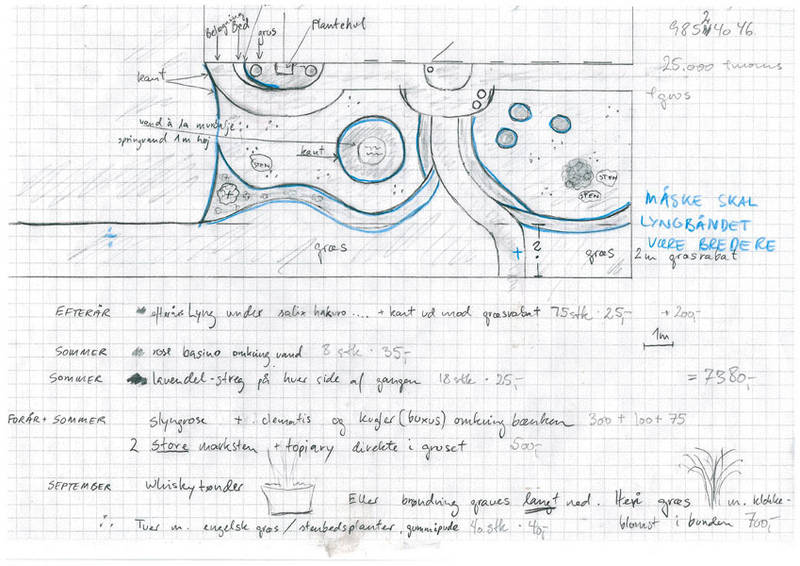 Belægning
Bed
grus
Plantehul
985 2 40 46
25.000 + moms
+ grus
kant
vand à la muranje
springvand 1 m høj
kant
STEN
STEN
STEN
MÅSKE SKAL
LYNGBÅNDET
VÆRE BREDERE
græs
+
2
græs
2m græsrabat
EFTERÅR efterårs Lyng under salix hakuro.... + kant ud mod græsrabat 75 stk · 25,- + 200,-
1m
SOMMER rose basino omkring vand 8 stk · 35,-
SOMMER lavendel-streg på hver side af gangen 18 stk · 25,- = 7380,-
FORÅR + SOMMER slyngrose + clematis og kugler (buxus) omkring bænken 300 + 100 + 75
2 store marksten + topiary direkte i gruset 500,-
SEPTEMBER Whiskytønder
Eller brøndring graves langt ned. Heri græs m. klokke-
blomst i bunden 700,-
Tuer m. engelsk græs / stenbedsplanter, gummipude 40 stk · 40,-